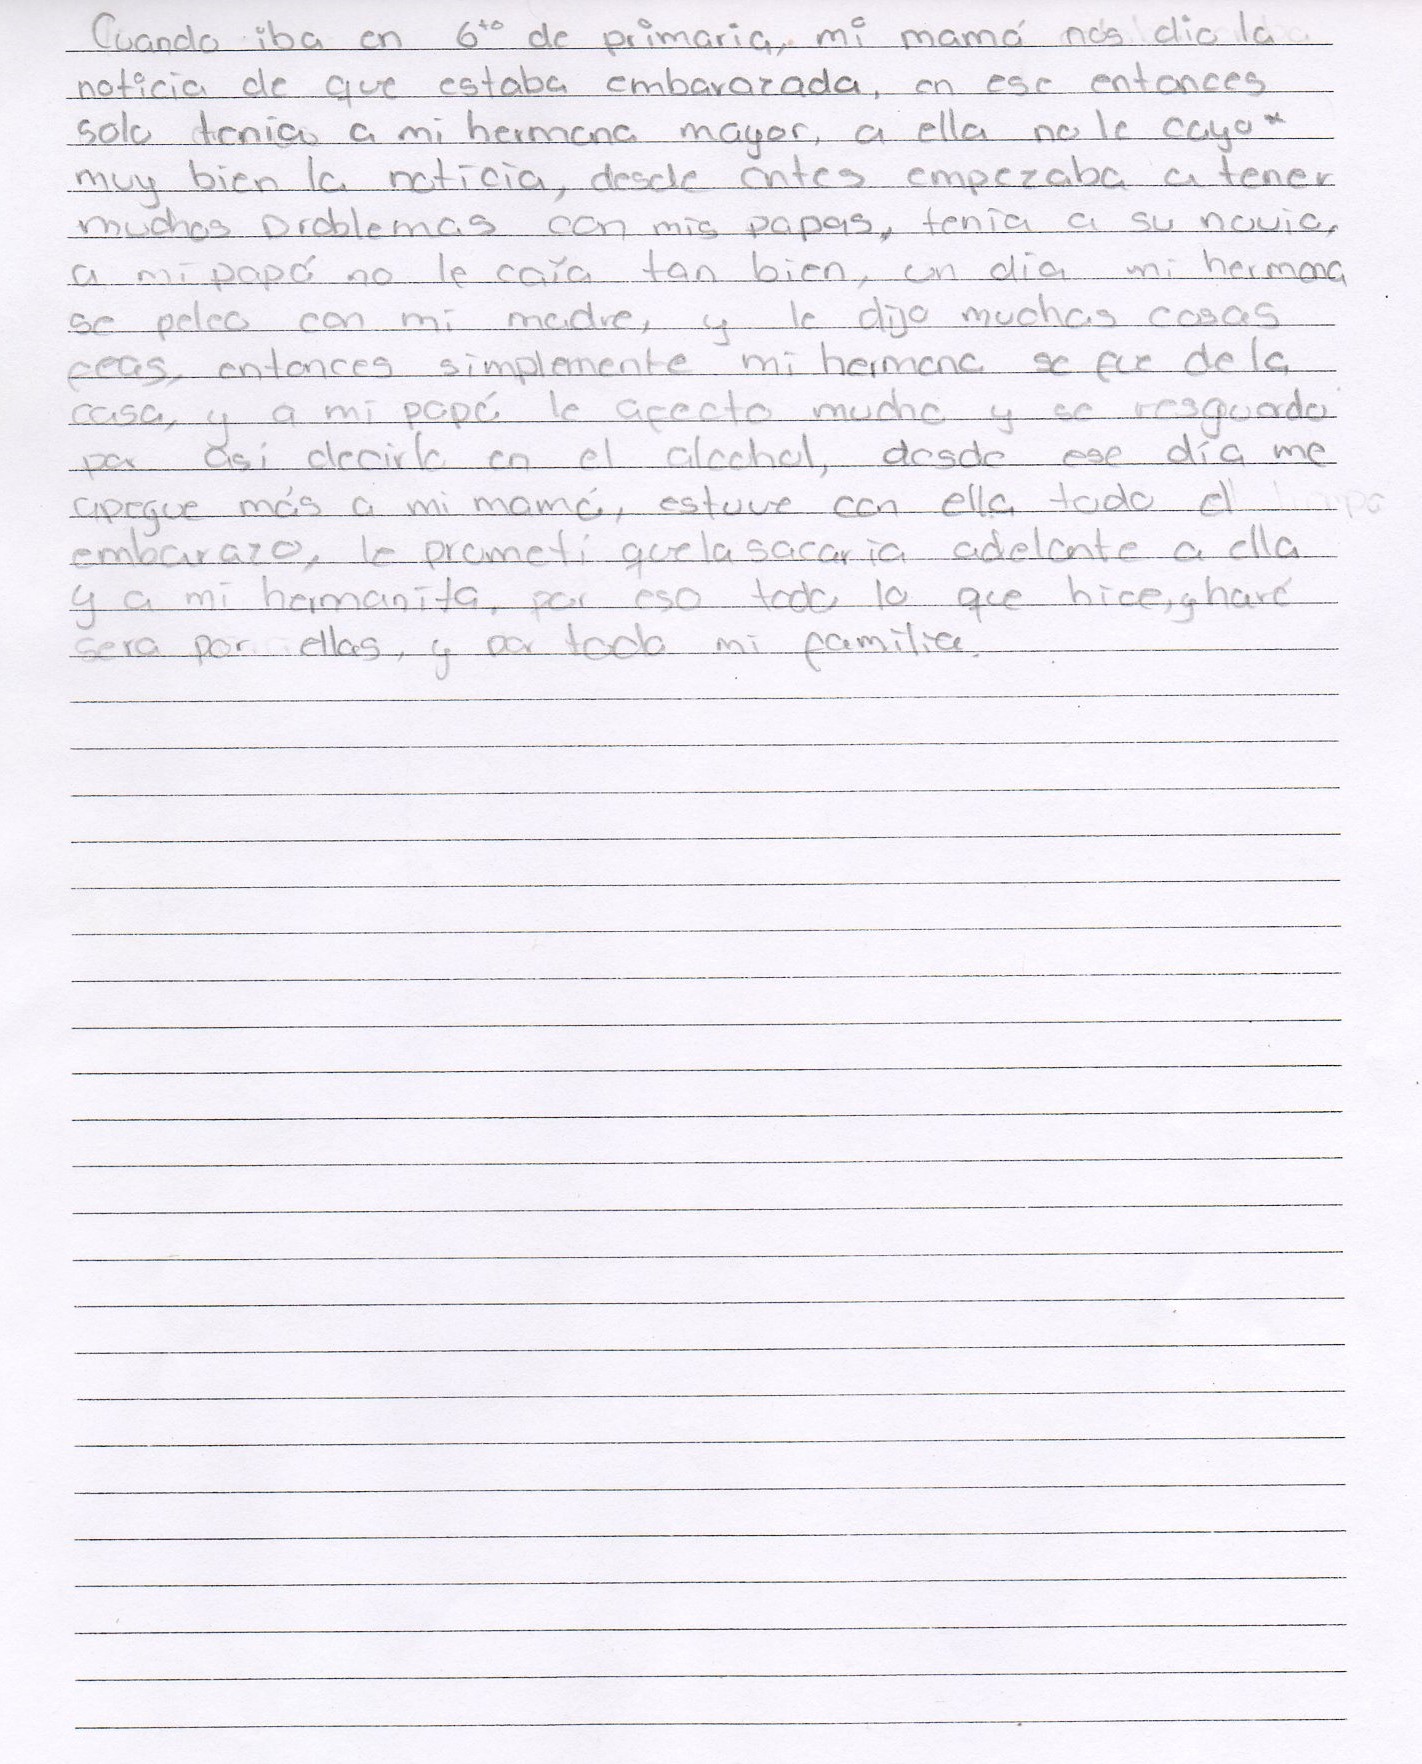 Cuando iba en 6to de primaria, mi mamá nos dio la
noticia de que estaba embarazada, en ese entonces
solo tenia a mi hermana mayor, a ella no le cayo*
muy bien la noticia, desde antes empezaba a tener
muchos problemas con mis papas, tenía a su novio,
a mi papá no le caía tan bien, un día mi hermana
se peleo con mi madre, y le dijo muchas cosas
feas, entonces simplemente mi hermana se fue de la
casa, y a mi papá le afecto mucho y se resguardo
por así decirlo en el alcohol, desde ese día me
apegue más a mi mamá, estuve con ella todo el
embarazo, le prometí que la sacaria adelante a ella
y a mi hermanita, por eso todo lo que hice, y haré
sera por ellas, y por toda mi familia.